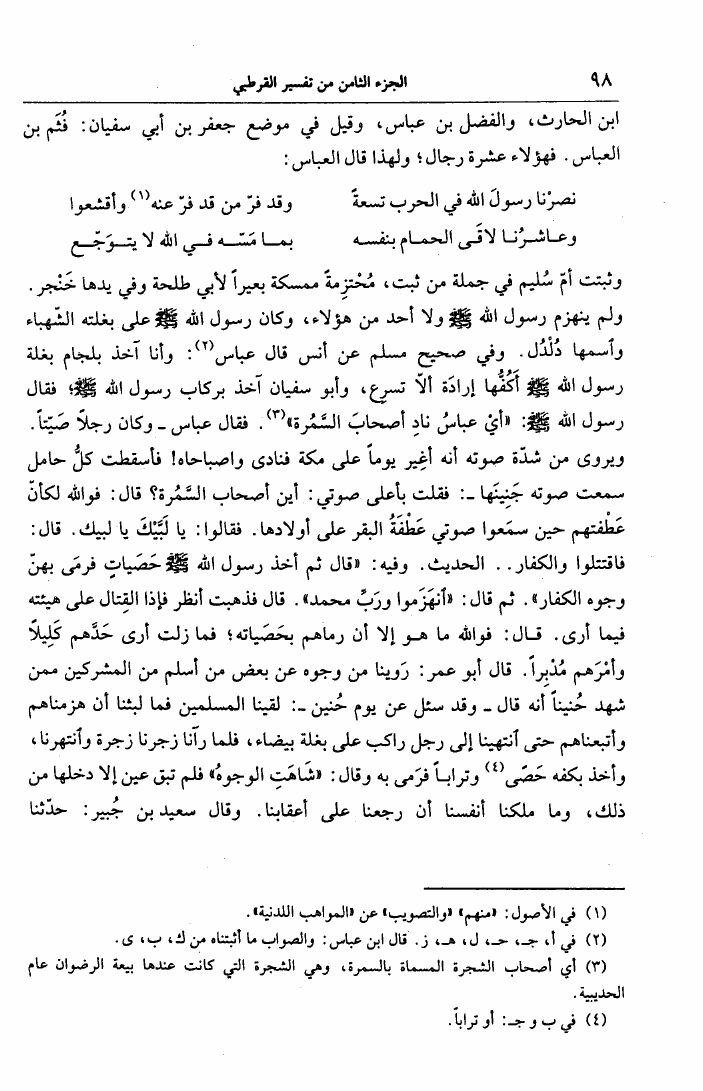 ٩٨ الجزء الثامن من تفسير القرطبي
ابن الحارث، والفضل بن عباس، وقيل في موضع جعفر بن أبي سفيان: قُثَم بن
العباس. فهؤلاء عشرة رجال؛ ولهذا قال العباس:
نصرْنا رسولَ الله في الحرب تسعةً وقد فرّ من قد فرّ عنه(١) وأقشعوا
وعـاشـرُنـا لاقَـى الحمـام بنفسـه بمـا مَسّـه فـي الله لا يتـوَجّـع
وثبتت أمّ سُليم في جملة من ثبت، مُحْتزِمةً ممسكة بعيراً لأبي طلحة وفي يدها خَنْجر.
ولم ينهزم رسول الله ﷺ ولا أحد من هؤلاء، وكان رسول الله ﷺ على بغلته الشّهباء
وأسمها دُلْدُل. وفي صحيح مسلم عن أنس قال عباس(٢): وأنا آخذ بلجام بغلة
رسول الله ﷺ أكُفُّها إرادَة ألاّ تسرع، وأبو سفيان آخذ بركاب رسول الله ﷺ؛ فقال
رسول الله ﷺ: «أيْ عباسُ نادِ أصحابَ السَّمُرة»(٣). فقال عباس ـ وكان رجلاً صَيِّتاً.
ويروى من شدّة صوته أنه أغِير يوماً على مكة فنادى واصباحاه! فأسقطت كلُّ حامل
سمعت صوته جَنِينَها ـ: فقلت بأعلى صوتي: أين أصحاب السَّمُرة؟ قال: فوالله لكأنّ
عَطْفتهم حين سمَعوا صوتي عَطْفَةُ البقر على أولادها. فقالوا: يا لَبَّيْكَ يا لبيك. قال:
فاقتتلوا والكفار.. الحديث. وفيه: «قال ثم أخذ رسول الله ﷺ حَصَياتٍ فرمَى بهنّ
وجوه الكفار». ثم قال: «أنهَزَموا ورَبِّ محمد». قال فذهبت أنظر فإذا القِتال على هيئته
فيما أرى. قـال: فوالله ما هـو إلا أن رماهم بحَصَياته؛ فما زلت أرى حَدَّهم كَلِيلاً
وأمْرَهم مُدْبِراً. قال أبو عمر: رَوينا من وجوه عن بعض من أسلم من المشركين ممن
شهد حُنيناً أنه قال ـ وقد سئل عن يوم حُنين ـ: لقينا المسلمين فما لبثنا أن هزمناهم
وأتبعناهم حتى أنتهينا إلى رجل راكب على بغلة بيضاء، فلما رآنا زجرنا زجرة وأنتهرنا،
وأخذ بكفه حَصًى(٤) وتراباً فرَمى به وقال: «شاهَتِ الوجوهُ» فلم تبق عين إلا دخلها من
ذلك، وما ملكنا أنفسنا أن رجعنا على أعقابنا. وقال سعيد بن جُبير: حدّثنا
(١) في الأصول: «منهم» «والتصويب» عن «المواهب اللدنية».
(٢) في أ، جـ، حـ، ل، هـ، ز. قال ابن عباس: والصواب ما أثبتناه من ك، ب، ى.
(٣) أي أصحاب الشجرة المسماة بالسمرة، وهي الشجرة التي كانت عندها بيعة الرضوان عام
الحديبية.
(٤) في ب و جـ: أو تراباً.